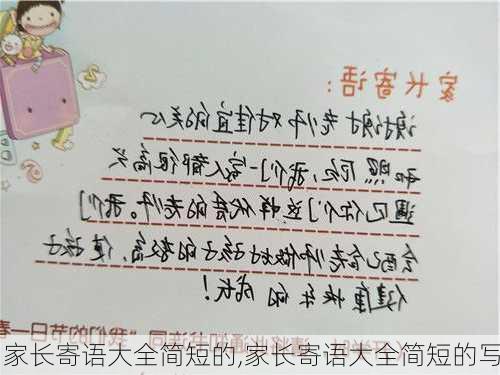 家长寄语:
谢谢老师对佳宜的关心
和照顾,我们一家人都很高兴
遇到你们这样优秀的老师。我们
会配合老师做好孩子的教育,使孩子
健康快乐的成长!
家长寄语大全简短的,家长寄语大全简短的写